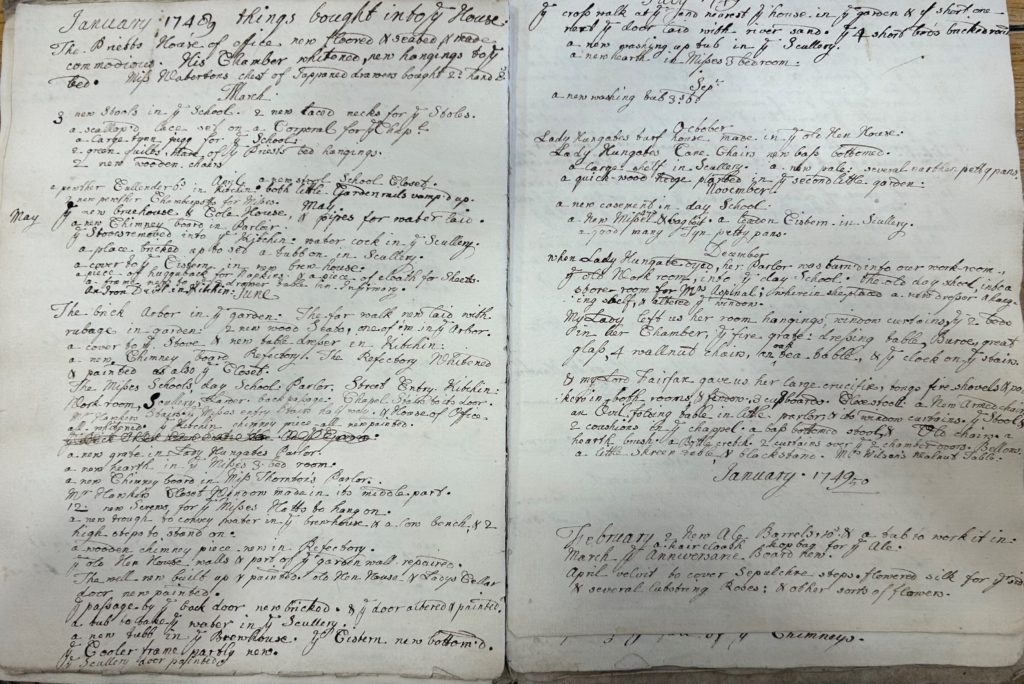 January 1748/9 things bought into yͤ House.
The Priests House of office new floored & seated & made
commodious. His Chamber whitened, new hangings to yͤ
bed. Miss Wabertons chest of Jappaned drawers bought 2ᵈ hand
March
3 new stools in yͤ School. 2 new laced necks for yͤ Stoles.
a scallop'd lace set on a Corporal for yͤ Chapˡ
a large tynn pigg for yͤ School.
2 green quilts of yͤ Priests bed hangings.
2 new wooden chairs
April a new School Closet.
a pewther Cullender in Kitchin: both little Garden rails vamp'd up.
new pewther Chamberpots for Misses.
May
May yͤ new brewhouse & Cole House, & pipes for water laid.
a new Chimney board in Parlor
yͤ Stoves removed into yͤ Kitchin: water cock in yͤ Scullery.
a place bricked up to set a tubb on in Scullery.
a cover to yͤ Cistern in new brew house.
a piece of huggaback for Napkins & a piece of cloath for Sheets.
a frame new to yͤ drawer table in Infirmary.
in Kitchin. June
The brick Arbor in yͤ garden: The far walk new laid with
rubage in garden: 2 new wood Seats, one of 'm in yͤ Arbor.
a cover to yͤ Stove & new table dreser in Kitchin:
a new Chimney board Refectory. The Refectory Whitened
& painted as also yͤ Closet.
The Misses Schools, day School Parlor, Street Entry. Kitchin.
Work room, Scullery, Larder. back passage. Chapel Stairs to its door.
Mʳ Hawkins Stairs, yͤ Misses entry & Stairs half way. & House of Office.
all whitened. yͤ Kitchin chimney piece all new painted.
a new grate in Lady Hungates Parlor.
a new hearth in yͤ Misses 3 bed room.
a new Chimney board in Miss Thorntons Parlor.
Mʳ Hawkins Closet Window made in its middle part.
12 new Screws, for yͤ Misses Hatts to hang on.
a new trough to convey water in yͤ brewhouse, & a low bench, & 2
high steps to stand on.
a wooden chimney piece new in Refectory.
yͤ old Hen House walls & part of yͤ garden wall repaired.
The well new built up & painted: old Hen House & Ladys Cellar
door new painted.
yͤ passage by yͤ back door new bricked. & yͤ door altered & painted.
a tub to take yͤ water in yͤ Scullery.
a new tubb in yͤ Brewhouse. yͤ Cistern new bottom'd.
yͤ Cooler frame partly new.
yͤ Scullery door painted
yͤ cross walk at yͤ end nearest yͤ house in yͤ garden & yͤ short one
next yͤ door laid with river sand. yͤ 4 short bricked round
a new washing up tub in yͤ Scullery.
a new hearth in Misses 3 bed room:
Sepᵗ
a new washing tub
October
Lady Hungates turf house made in yͤ old Hen House.
Lady Hungates Cane Chairs new bass bottomed.
a large shelf in Scullery. a new pale: several earthen petty pans.
a quick-wood hedge planted in yͤ second little garden.
November
a new casement in day School.
a New Missell & bag. a Leaden Cistern in Scullery.
a good many Tyn petty pans.
December
when Lady Hungate dyed, her Parlor was turn'd into our work-room,
yͤ old Work room into yͤ day School. the old day shool, into a
store room for Mʳˢ Aspinal; wherein she placed a new dresser
shelf, & altered yͤ window.
My Lady left us her room hangings, window curtains, yͤ 2 beds
in her Chamber, yͤ fire grate: dressing table, Buroe, great
glass, 4 wallnut chairs, oak tea table, & yͤ clock on yͤ stairs.
& my Lord Fairfax gave us her large crucifix, tongs fire shovels & po-
kers in both rooms, & window, 3 cupboards. Close stooll: a New Armed chair
an Oval folding table in little parlor, & its window curtains. yͤ Stools &
2 cushions of yͤ chappel. a bass bottomed stool, & chairs. a
hearth brush. 2 curtains over yͤ 2 chamber doors. Bellows.
a little skreen table & blackstand. Mʳˢ Wilson's walnut Table.
January. 1749/50
February 2 New Ale Barrels, & a tub to work it in
a hair cloath, hop bag for yͤ Ale.
March yͤ Anneversarie Board new.
April velvit to cover Sepulchre steps. flowered silk for yͤ
& several Lutstring Roses: & other sorts of flowers.
of yͤ Chimneys.